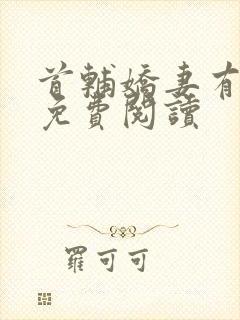 首輔嬌妻有
免費閱讀
羅可可